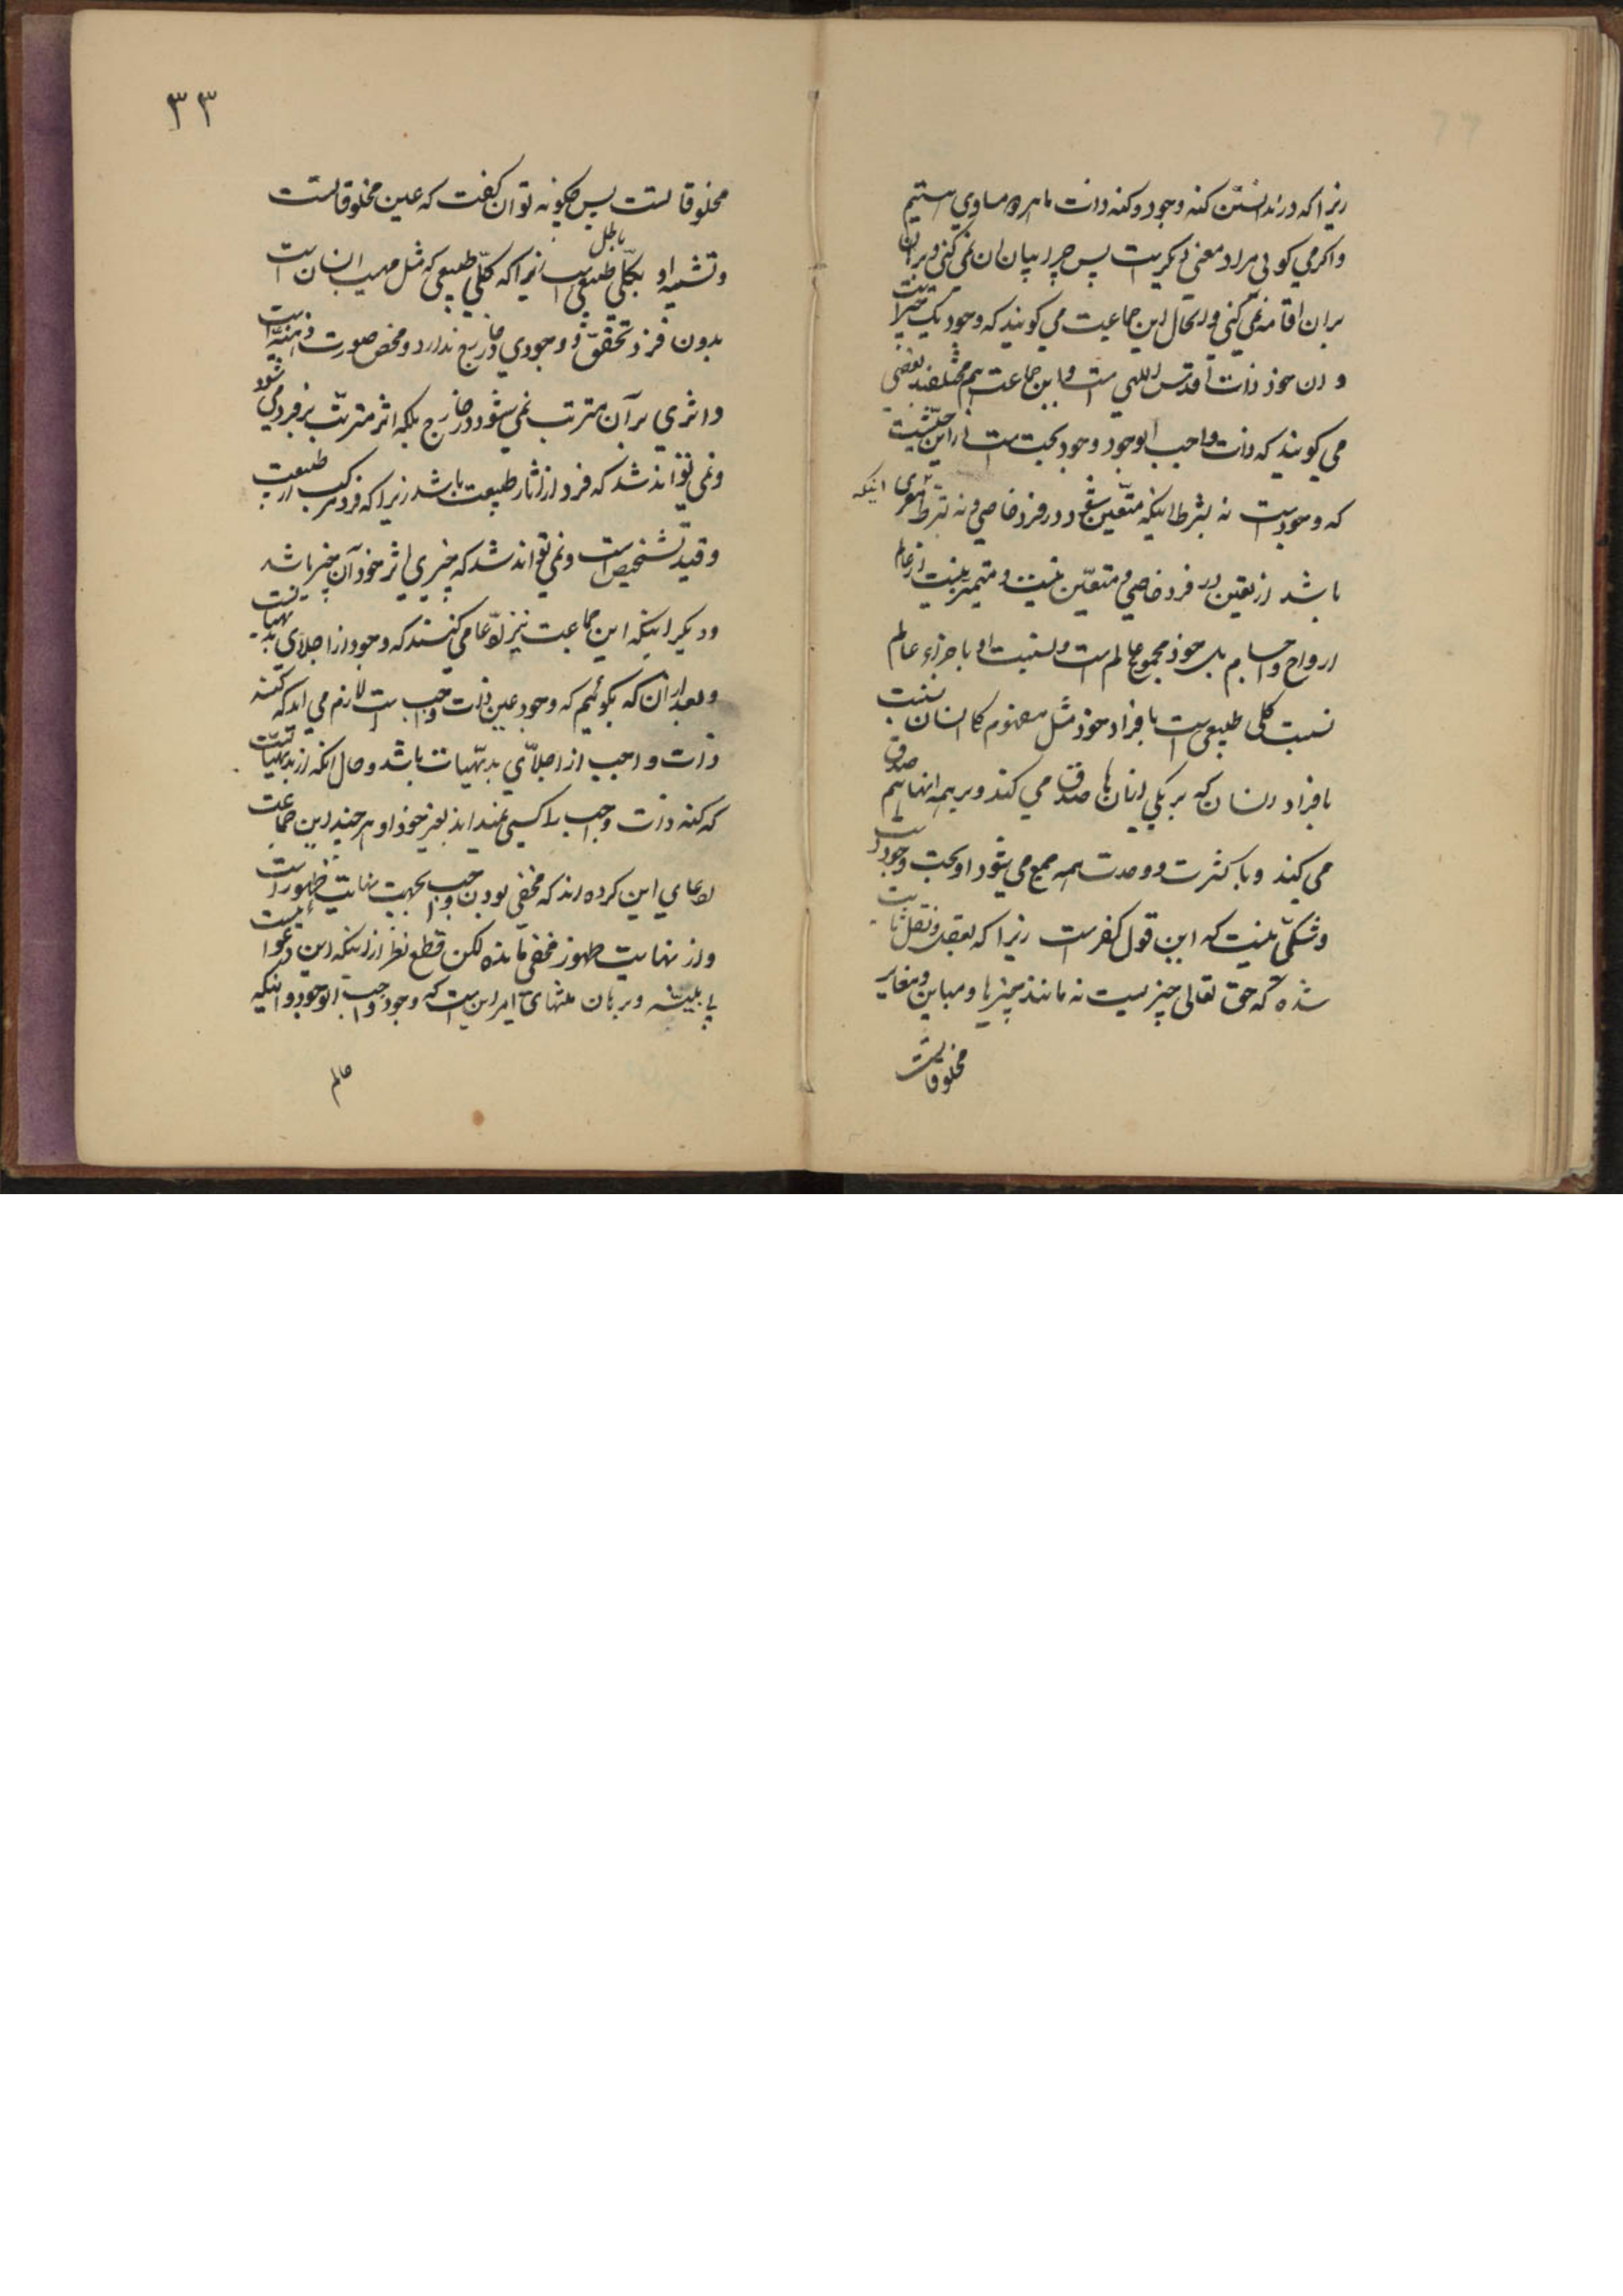 زیرا که در ندانستن کنه وجود و کنه ذات ما هر دو مساوی هستیم
و اکر می کوئی مراد معنی دیکریست پس چرا بیان ان نمی کنی و برهان
بران اقامه نمی کنی و بالحال این جماعت می کویند که وجود یک چیز است
و ان خود ذات اقدس الهی است و این جماعت هم مختلفند بعضی
می کویند که ذات واجب الوجود وجود بحت است از این حیثیت
که وجود است نه بشرط اینکه متعین شود در فرد خاصی و نه بشرط اینکه معری
باشد از تعین در فرد خاصی و متعین نیست و متمیز نیست از عالم
ارواح و اجسام بلکه خود مجموع عالم است و نسبت او با جزاء عالم
نسبت کلی طبیعی است با فراد خود مثل مفهوم کا انسان نسبت
با فراد انسان که بر یکی ازیان ها صدق می کند و بر همه انها هم صدق
می کند و با کثرت و وحدت همه جمع می شود او بحت وجود است
و شکی نیست که این قول کفر است زیرا که بعقل و نقل ثابت
شده که حق تعالی چیزیست نه مانند چیزها و مباین و مغایر
مخلوقاتست
۳۳
مخلوقاتست پس چکونه توان کفت که عین مخلوقاتست
و تشبیه او بکلی طبیعی باطل است زیرا که کلی طبیعی که مثل مهیت انسان است
بدون فرد تحقق و وجودی در خارج ندارد و محض صورت ذهنیه است
و اثری بر آن مترتب نمی شود در خارج بلکه اثر مترتب بر فرد می شود
و نمی تواند شد که فرد از اثار طبیعت باشد زیرا که فرد مرکب از طبیعت
و قید تشخیص است و نمی تواند شد که چیزی اثر خود آن چیز باشد
و دیکر اینکه این جماعت نیز ادّعا می کنند که وجود از اجلای بدیهیاتست
و بعد از ان که بکوئیم که وجود عین ذات واجب است لازم می اید که کنه
ذات واجب از اجلّای بدیهیات باشد و حال انکه از بدیهیاتست
که کنه ذات واجب را کسی نمیداند بغیر خود او هر چند این جماعت
ادعای این کرده اند که مخفی بودن واجب بجهت نهایت ظهور است
و از نهایت ظهور مخفی مانده لکن قطع نظر از اینکه این دعوائیست
بی بینه و برهان منتهای امر این است که وجود واجب الوجود و اینکه
عالم